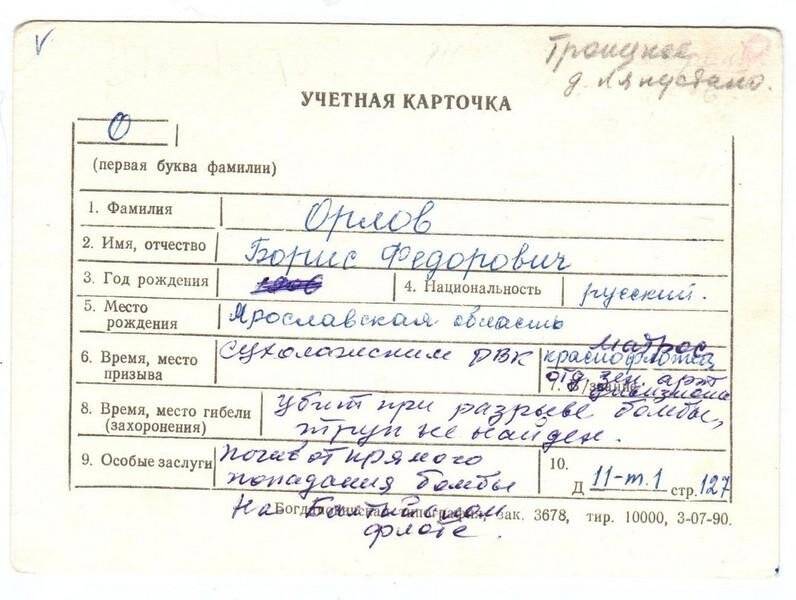 V
Троицкое
д.
УЧЕТНАЯ КАРТОЧКА
О
(первая буква фамилии)
1. Фамилия Орлов
2. Имя, отчество Борис Федорович
3. Год рождения 1906 4. Национальность русский.
5. Место рождения Ярославская область
6. Время, место призыва Сухоложским РВК
матрос
краснофлотец
отд. зен. арт
дивизиона
7. В/звание
8. Время, место гибели (захоронения) убит при разрыве бомбы,
труп не найден.
9. Особые заслуги погиб от прямого
попадания бомбы
На Балтийском
флоте.
10.
Д 11-т.1 стр. 127
Богдановичская типография, зак. 3678, тир. 10000, 3-07-90.